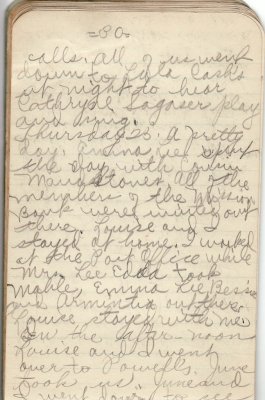 =30=
calls. All of us went
down to Lula Cash's
at night to hear
Cathryne Sagaser play
and sing.
Thursday 26. A pretty
day. Emma Lee spent
the day with
Maud Stones. All of the
members of the Mission
Band were invited out
there. Louise and I
stayed at home. I worked
at the Post Office while
Mrs. Lee Edd took
Mable, Emma Lee Bessie
and Armintia out there.
Louise stayed with me.
In the after-noon
Louise and I went
over to Powell's. June
took us. June and
I went down to see